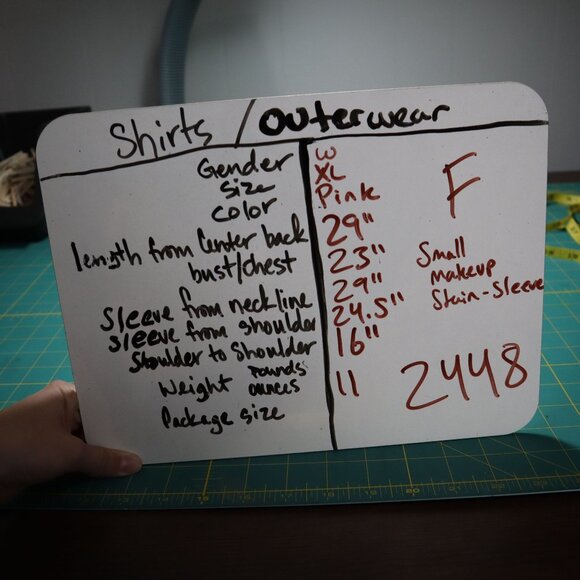 Shirts / Outerwear
Gender W
size XL
color Pink
length from Center back 29"
bust/chest 23"
Sleeve from neckline 29"
sleeve from shoulder 24.5"
Shoulder to Shoulder 16"
Weight pounds
ounces 11
Package size
F
Small
makeup
Stain-Sleeve
2448